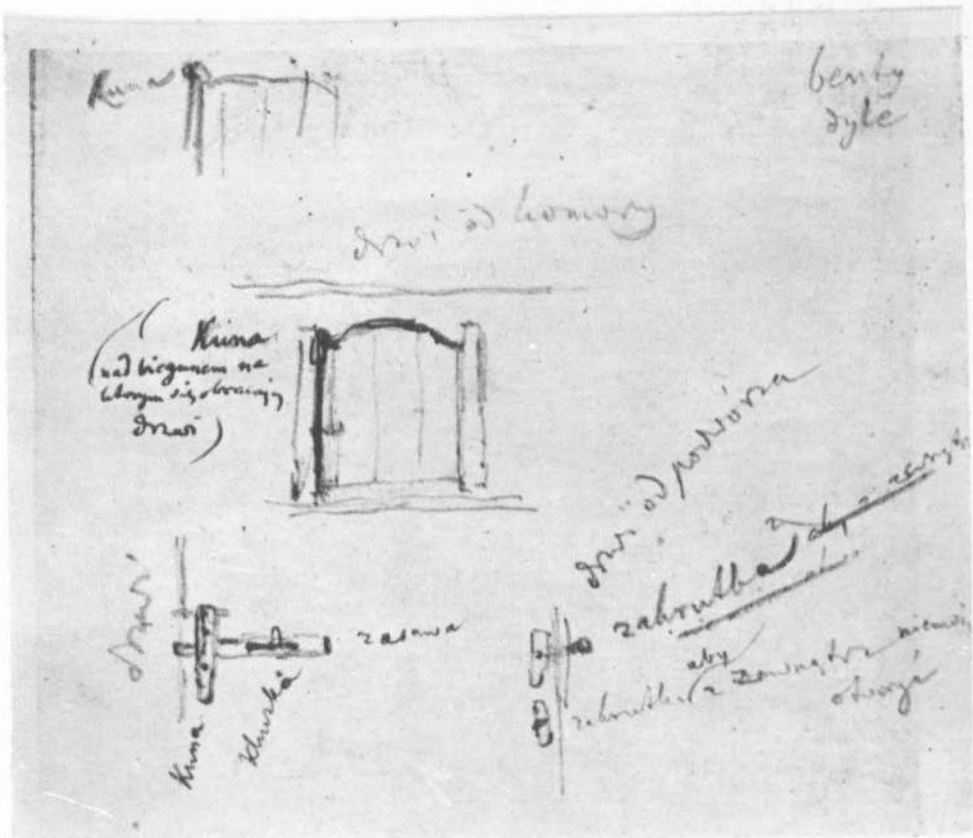 Kuna
benty
dyle
drzwi od komory
Kuna
nad biegunem na
którym się obracają
drzwi)
drzwi od podwórza
zakrutka
aby
zakrutka z zewnątrz niemóc
otworzyć
drzwi
zasuwa
Kuna